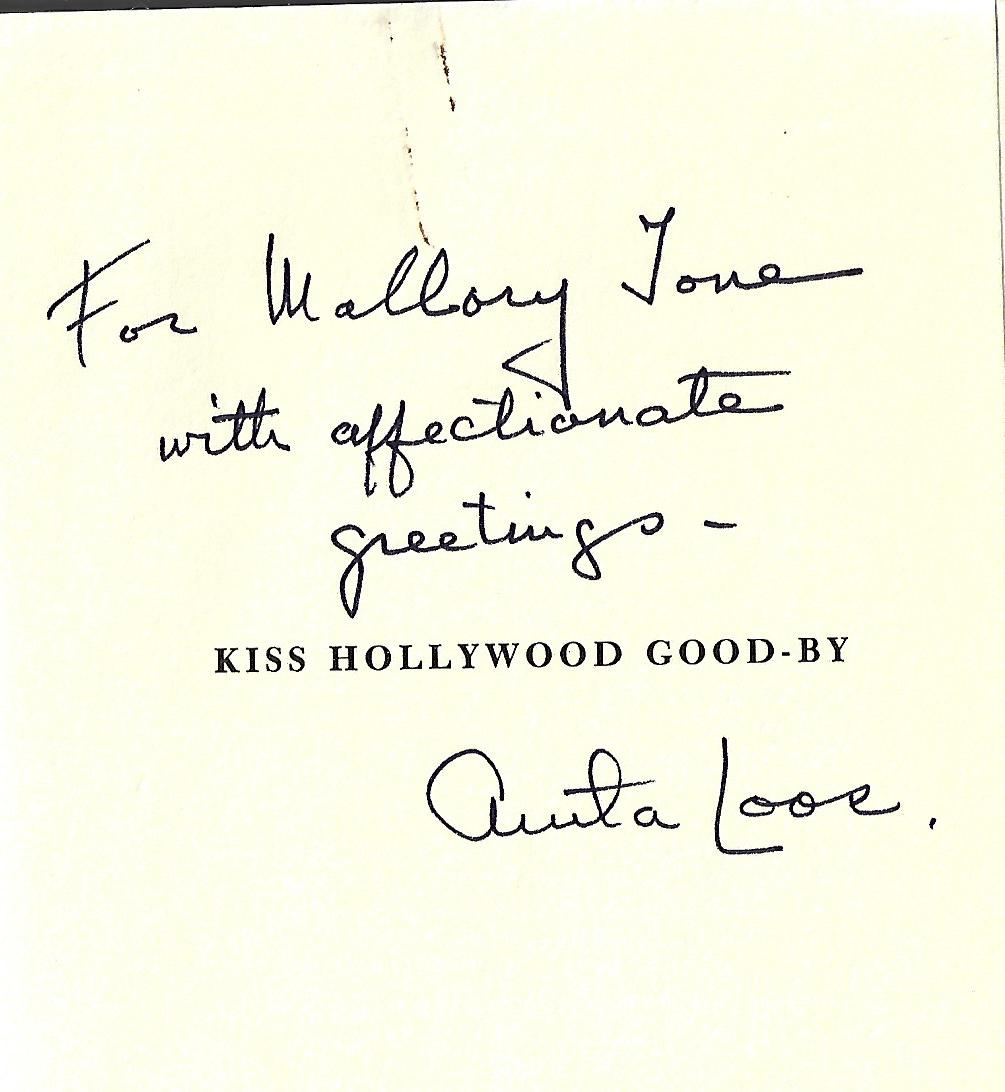 For Mallory Tone
with affectionate
greetings -
KISS HOLLYWOOD GOOD-BY
Anita Loos.